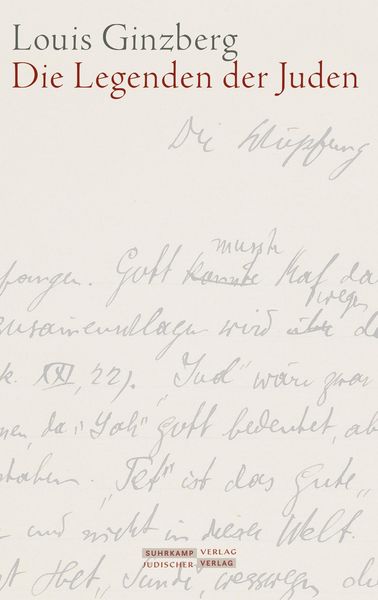 Louis Ginzberg
Die Legenden der Juden
Die Schöpfung
musste
fangen. Gott konnte Kaf da
wegen
zusammenschlagen wird über de
k. XXI, 22). "Jud" wäre zwar
men, da "Jah" Gott bedeutet, ab
staben. "Tet" ist das Gute,
und nicht in dieser Welt.
SUHRKAMP VERLAG
JÜDISCHER VERLAG
st Het, "Sünde, weswegen